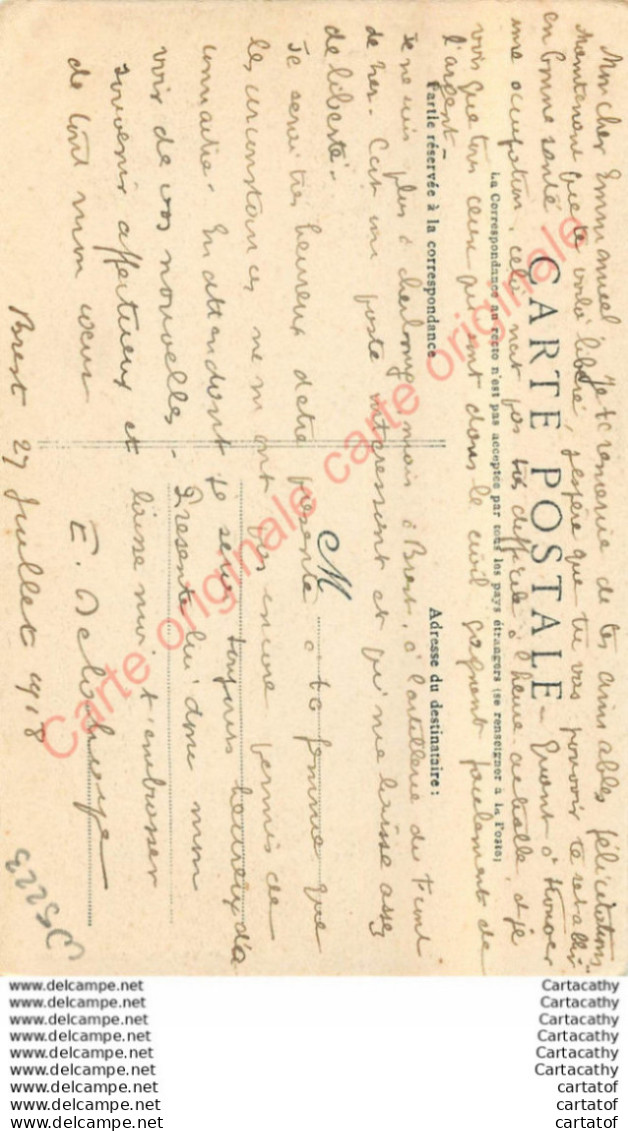 Mon cher Emmanuel, Je te remercie de tes aimables félicitations
Maintenant que te voilà libéré, j'espère que tu vas pouvoir te rétablir
en bonne santé - Quant à trouver
CARTE POSTALE
une occupation, cela n'est pas très difficile à l'heure actuelle, et je
La Correspondance au recto n'est pas acceptée par tous les pays étrangers (se renseigner à la Poste)
vois que tous ceux qui sont dans le civil gagnent facilement de
l'argent -
Partie réservée à la correspondance
Adresse du destinataire :
Je ne suis plus à Cherbourg, mais à Brest, à l'artillerie du front
de mer. C'est un poste intéressant et qui me laisse assez
de liberté.
M
Je serai très heureux d'être présenté à ta femme que
les circonstances ne m'ont pas encore permis de
connaître. En attendant je serai toujours heureux d'a
voir de vos nouvelles - Présente lui donc mon
souvenir affectueux et laisse moi t'embrasser
de tout mon coeur
E.
Brest 27 Juillet 1918
D5223
Carte originale carte originale
Carte originale
www.delcampe.net Cartacathy
www.delcampe.net Cartacathy
www.delcampe.net Cartacathy
www.delcampe.net Cartacathy
www.delcampe.net Cartacathy
www.delcampe.net Cartacathy
www.delcampe.net cartatof
www.delcampe.net cartatof
www.delcampe.net cartatof